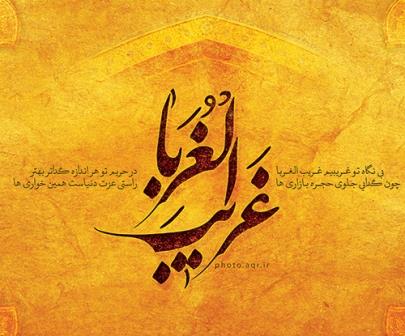 غریب الغُربا
بی نگاه تو غریبیم غریب الغربا
چون گدائی جلوی حجره بازاری ها
در حریم تو هر اندازه گداتر بهتر
راستی عزت دنیاست همین خواری ها
photo.aqr.ir